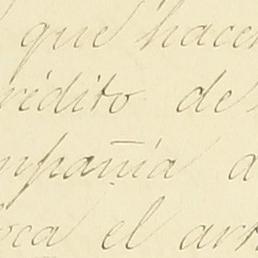 que hacer
crédito de
ompañía a
oca el arr